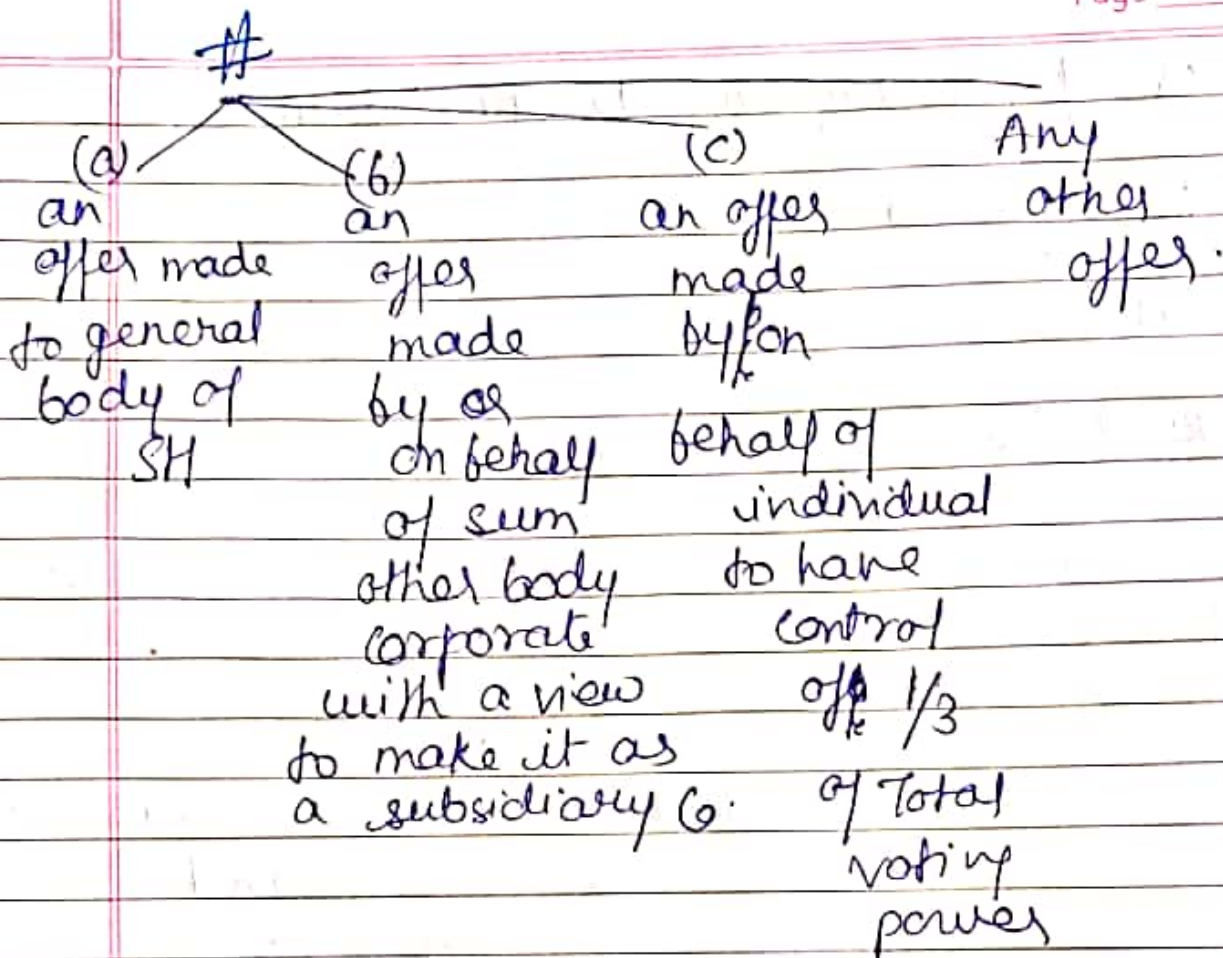 Page
#
(a)
an
offer made
to general
body of
SH
(b)
an
offer
made
by or
on behalf
of sum
other body
corporate
with a view
to make it as
a subsidiary Co.
(c)
an offer
made
by/on
behalf of
individual
to have
control
of 1/3
of Total
voting
power
Any
other
offer.